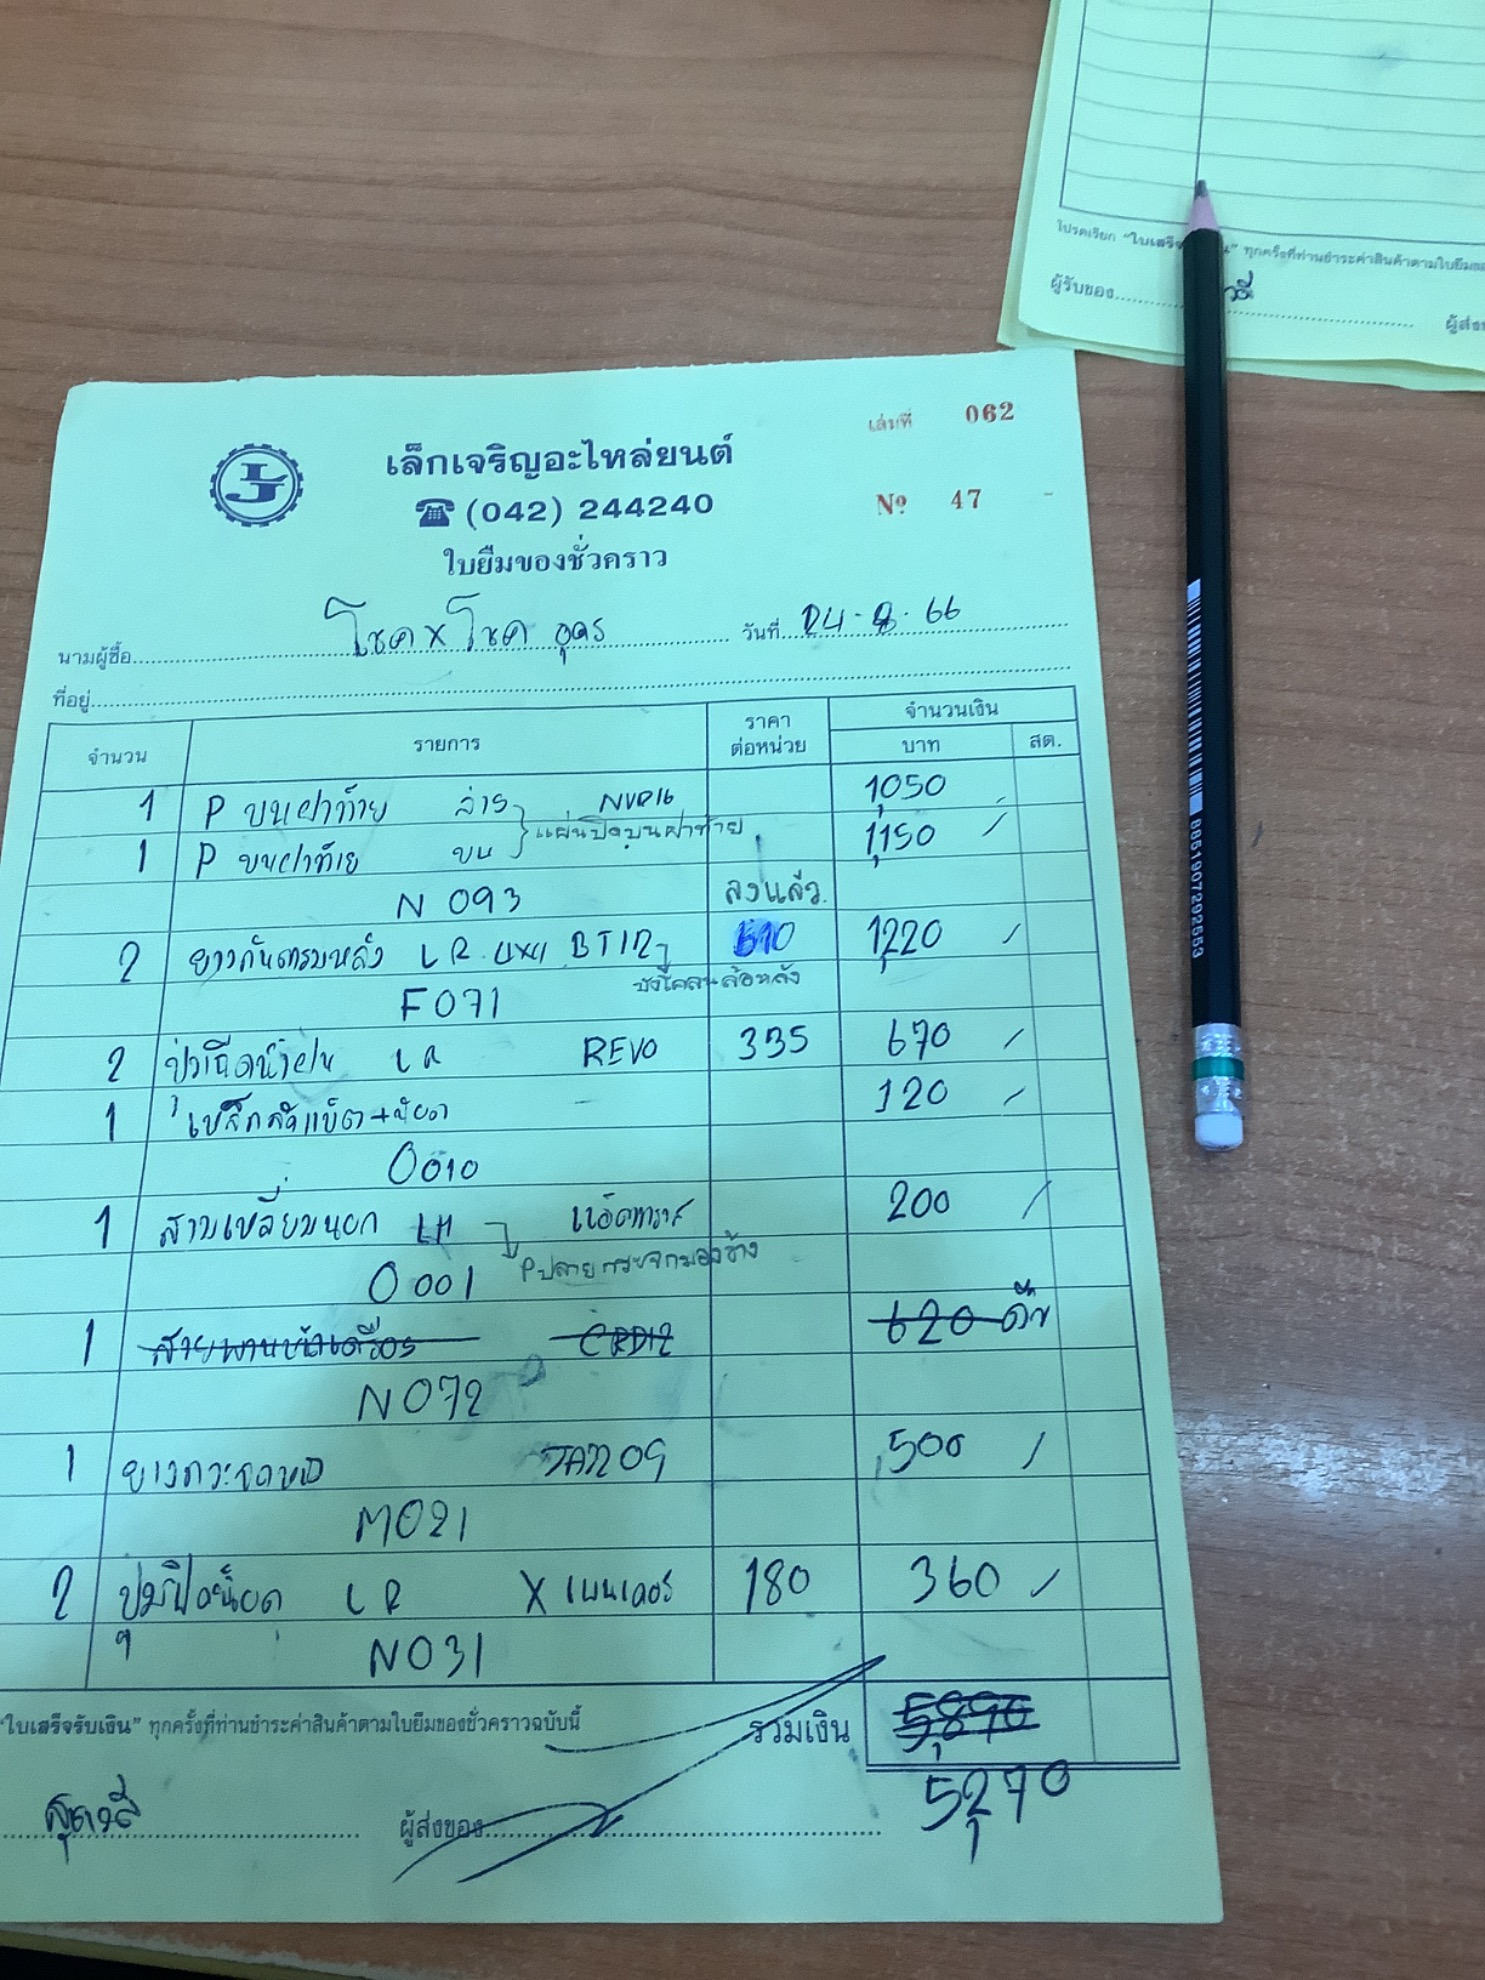 โปรดเรียก "ใบเสร็จ น" ทุกครั้งที่ท่านชำระค่าสินค้าตามใบยืมขอ
ผู้รับของ
ผู้ส่ง
เล่มที่ 062
เล็กเจริญอะไหล่ยนต์
(042) 244240
Nº 47
ใบยืมของชั่วคราว
นามผู้ซื้อ โชค x โชค อุดร วันที่ 24-8-66
ที่อยู่
จำนวน รายการ ราคาต่อหน่วย จำนวนเงิน
บาท สต.
1 P บนฝาท้าย ล่าง 1,050
แผ่นปิดบนฝาท้าย
1 P บนฝาท้าย บน 1,150
N 093 ลงแล้ว
2 ยางกันโคลนหลัง LR 610 1,220
บังโคลนล้อหลัง
F071
2 LR REVO 335 670
1 เหล็กรัดแบ็ต+น๊อต - 120
0010
1 สามเหลี่ยมนอก LH 200
P ปลายกระจกมองข้าง
0001
1 สายพานหน้าเครื่อง CRD12 620 คืน
N072
1 ยางกระจกหน้า 500
M021
2 ปุ่มปิดน็อต LR X เพนเดอร์ 180 360
N031
"ใบเสร็จรับเงิน" ทุกครั้งที่ท่านชำระค่าสินค้าตามใบยืมของชั่วคราวฉบับนี้ รวมเงิน 5,890
5,270
สุดาวลี ผู้ส่งของ
8851907292553